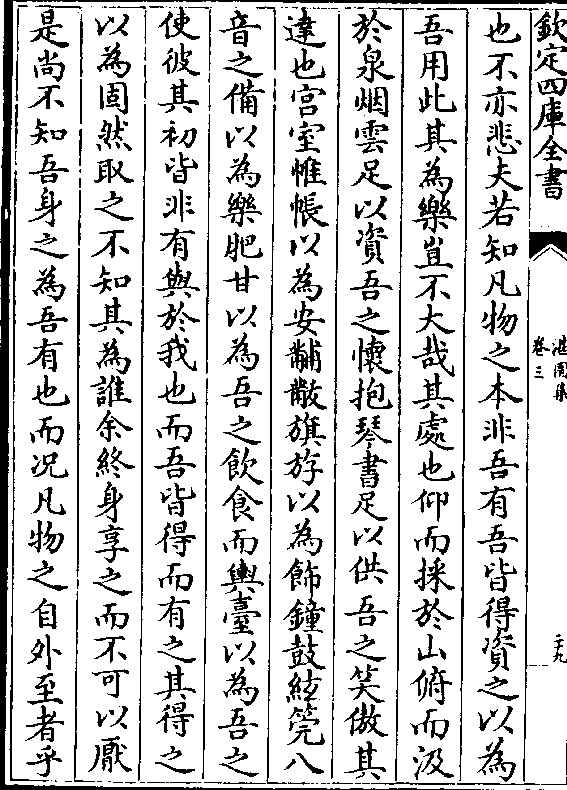 欽定四庫全書
淮岡集
卷三
二十九
也不亦悲夫若知凡物之本非吾有吾皆得資之以為
吾用此其為樂豈不大哉其處也仰而採於山俯而汲
於泉烟雲足以資吾之懷抱琴書足以供吾之笑傲其
達也宮室帷帳以為安黼黻旗斿以為飾鐘鼓絃筦八
音之備以為樂肥甘以為吾之飲食而輿臺以為吾之
使彼其初皆非有與於我也而吾皆得而有之其得之
以為固然取之不知其為誰余終身享之而不可以厭
是尚不知吾身之為吾有也而况凡物之自外至者乎